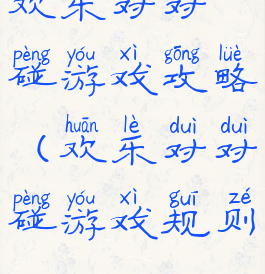 欢乐对对
pèng yóu xì gōng lüè
碰游戏攻略
huān lè duì duì
（欢乐对对
pèng yóu xì guī zé
碰游戏规则